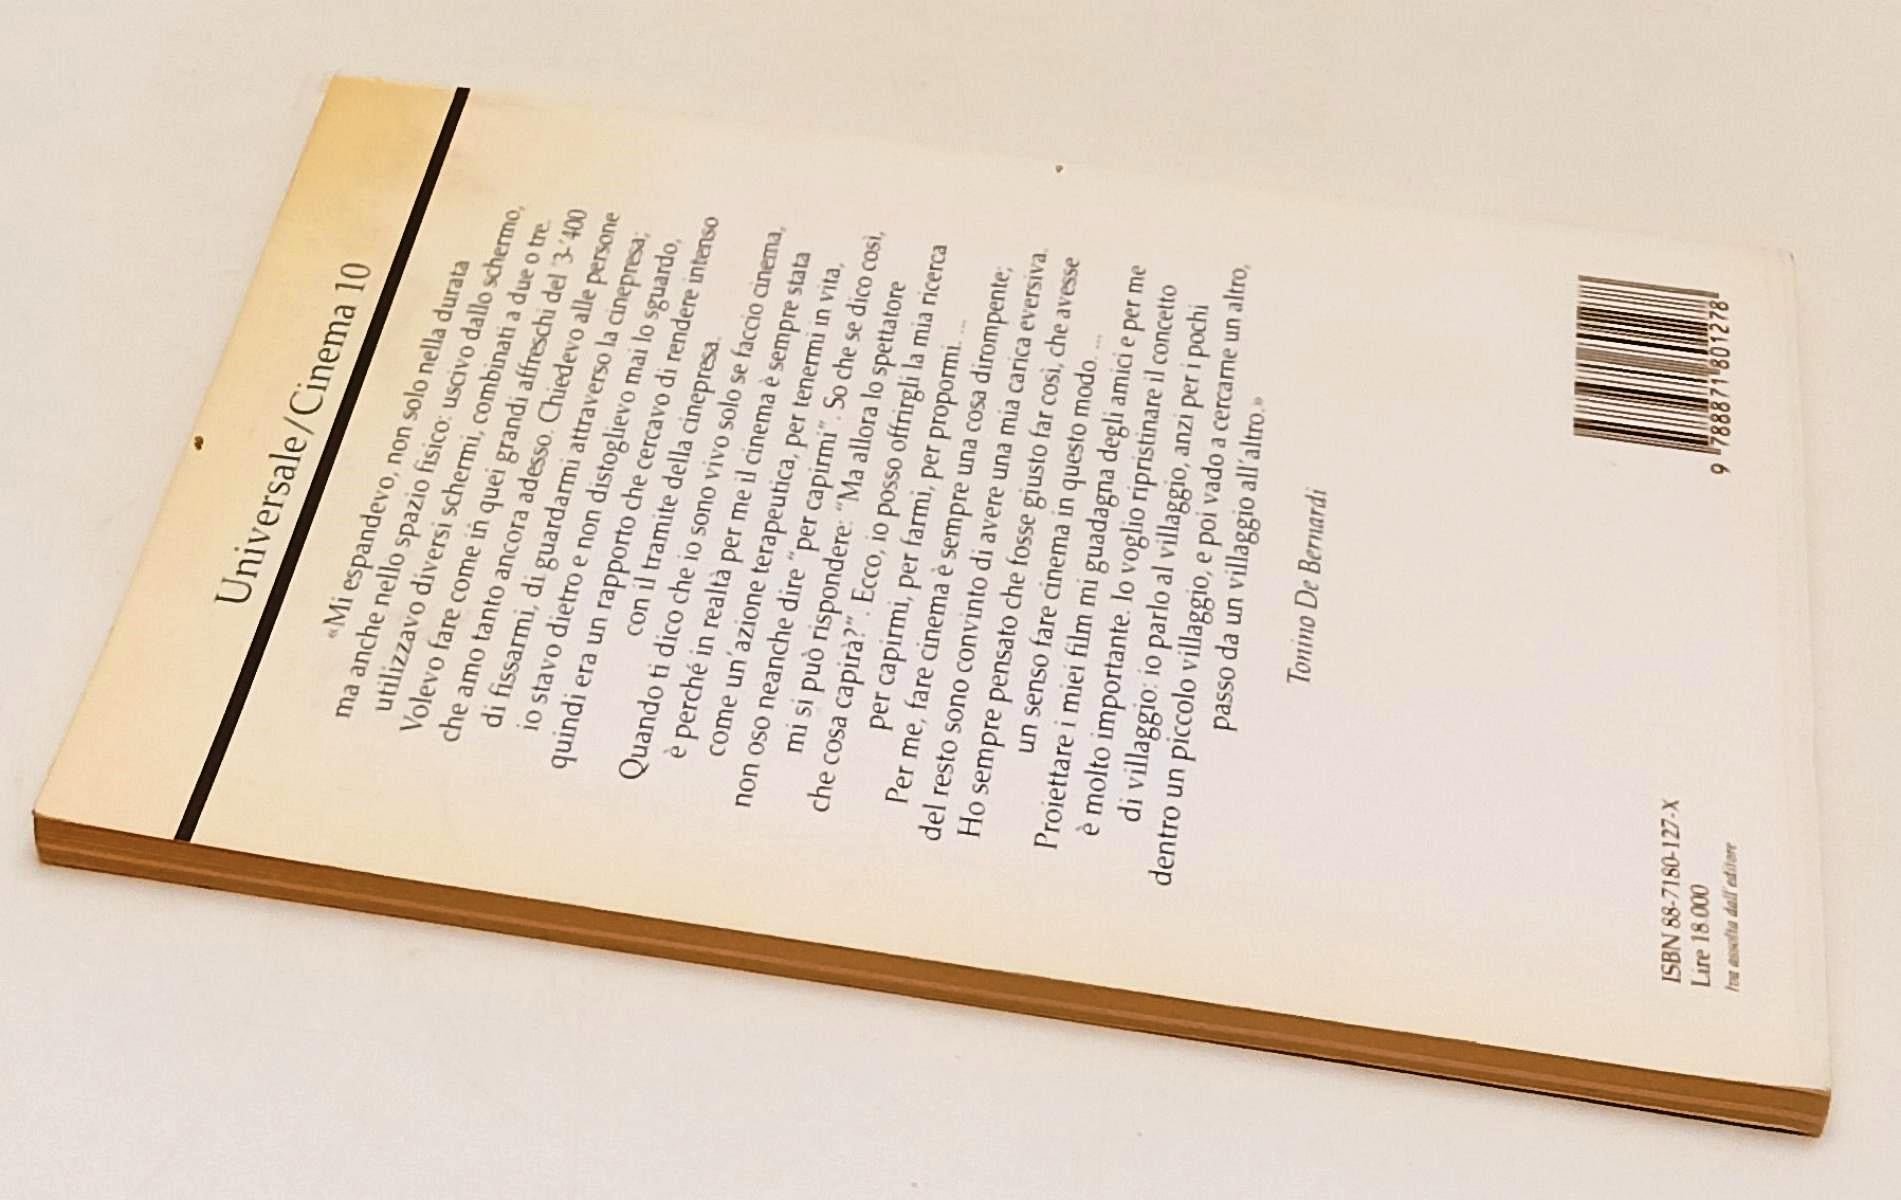 Universale/Cinema 10
«Mi espandevo, non solo nella durata
ma anche nello spazio fisico: uscivo dallo schermo,
utilizzavo diversi schermi, combinati a due o tre.
Volevo fare come in quei grandi affreschi del '3-'400
che amo tanto ancora adesso. Chiedevo alle persone
di fissarmi, di guardarmi attraverso la cinepresa;
io stavo dietro e non distoglievo mai lo sguardo,
quindi era un rapporto che cercavo di rendere intenso
con il tramite della cinepresa.
Quando ti dico che io sono vivo solo se faccio cinema,
è perché in realtà per me il cinema è sempre stata
come un'azione terapeutica, per tenermi in vita,
non oso neanche dire "per capirmi". So che se dico così,
mi si può rispondere: "Ma allora lo spettatore
che cosa capirà?". Ecco, io posso offrirgli la mia ricerca
per capirmi, per farmi, per propormi. ...
Per me, fare cinema è sempre una cosa dirompente;
del resto sono convinto di avere una mia carica eversiva.
Ho sempre pensato che fosse giusto far così, che avesse
un senso fare cinema in questo modo. ...
Proiettare i miei film mi guadagna degli amici e per me
è molto importante. Io voglio ripristinare il concetto
di villaggio: io parlo al villaggio, anzi per i pochi
dentro un piccolo villaggio, e poi vado a cercarne un altro,
passo da un villaggio all'altro.»
Tonino De Bernardi
ISBN 88-7180-127-X
Lire 18.000
Iva assolta dall'editore
9 788871 801278